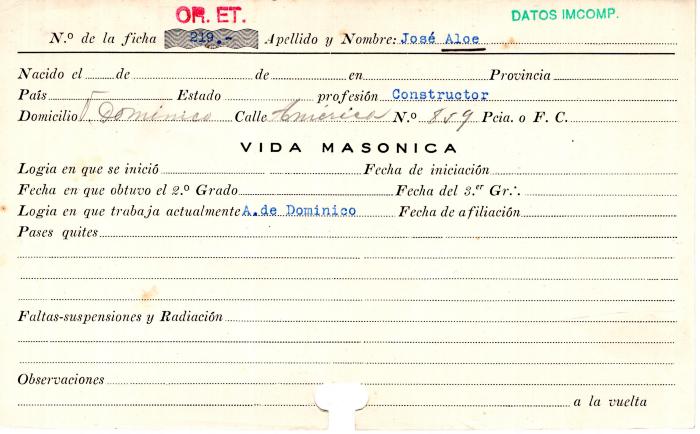 OR. ET.
DATOS IMCOMP.
N.º de la ficha 219.- Apellido y Nombre: José Aloe
Nacido el de de en Provincia
País Estado profesión Constructor
Domicilio Dominico Calle América N.º 859 Pcia. o F. C.
VIDA MASONICA
Logia en que se inició Fecha de iniciación
Fecha en que obtuvo el 2.º Grado Fecha del 3.er Gr.·.
Logia en que trabaja actualmente A.de Dominico Fecha de afiliación
Pases quites
Faltas-suspensiones y Radiación
Observaciones
a la vuelta